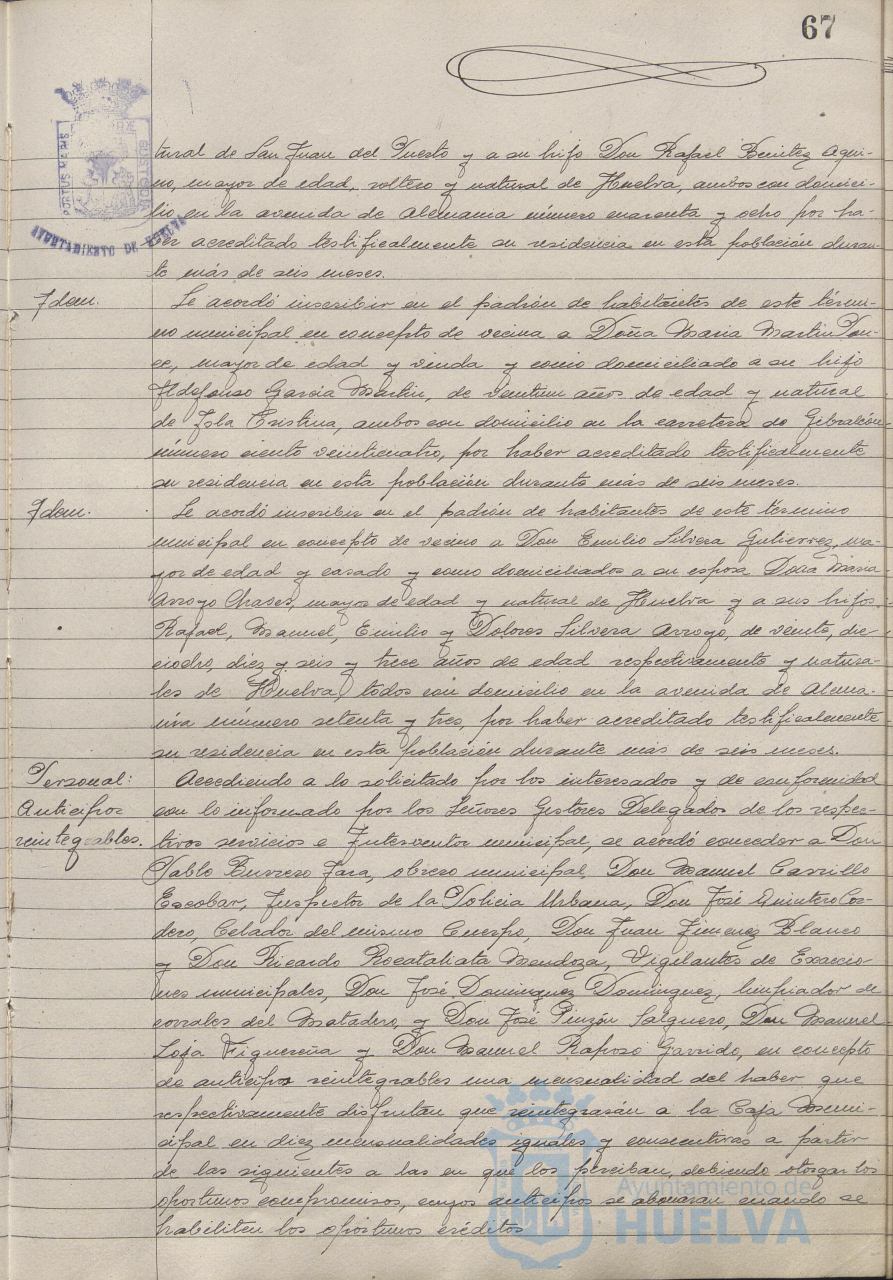 67
PORTUS MARIS
ET TERRÆ CUSTODIA
AYUNTAMIENTO DE HUELVA
tural de San Juan del Puerto y a su hijo Don Rafael Benitez Aqui-
no, mayor de edad, soltero y natural de Huelva, ambos con domici-
lio en la avenida de Alemania número cuarenta y ocho por ha-
ber acreditado testificalmente su residencia en esta población duran-
te más de seis meses.
Idem.
Se acordó inscribir en el padrón de habitantes de este térmi-
no municipal en concepto de vecina a Doña Maria Martin Pon-
ce, mayor de edad y viuda y como domiciliado a su hijo
Ildefonso Garcia Martin, de veintiun años de edad y natural
de Isla Cristina, ambos con domicilio en la carretera de Gibraleón
número ciento veinticuatro, por haber acreditado testificalmente
su residencia en esta población durante más de seis meses.
Idem.
Se acordó inscribir en el padrón de habitantes de este término
municipal en concepto de vecino a Don Emilio Silvera Gutierrez, ma-
yor de edad y casado y como domiciliados a su esposa Doña Maria
Arroyo Chaves, mayor de edad y natural de Huelva y a sus hijos,
Rafael, Manuel, Emilio y Dolores Silvera Arroyo, de veinte, die-
ciocho, diez y seis y trece años de edad respectivamente y natura-
les de Huelva, todos con domicilio en la avenida de Alema-
nia número setenta y tres, por haber acreditado testificalmente
su residencia en esta población durante más de seis meses.
Personal:
Anticipos
reintegrables.
Accediendo a lo solicitado por los interesados y de conformidad
con lo informado por los Señores Gestores Delegados de los respec-
tivos servicios e Interventor municipal, se acordó conceder a Don
Pablo Burrero Jara, obrero municipal, Don Manuel Carrillo
Escobar, Inspector de la Policia Urbana, Don José Quintero Cor-
dero, Celador del mismo Cuerpo, Don Juan Jimenez Blanco
y Don Ricardo Rocataliata Mendoza, Vigilantes de Exaccio-
nes municipales, Don José Dominguez Dominguez, limpiador de
corrales del Matadero, y Don José Pinzón Salguero, Don Manuel
Loja Figuereña y Don Manuel Raposo Garrido, en concepto
de anticipos reintegrables una mensualidad del haber que
respectivamente disfrutan que reintegrarán a la Caja Muni-
cipal en diez mensualidades iguales y consecutivas a partir
de las siguientes a las en que los perciban, debiendo otorgar los
oportunos compromisos, cuyos anticipos se abonaran cuando se
habiliten los oportunos créditos
Ayuntamiento de
HUELVA